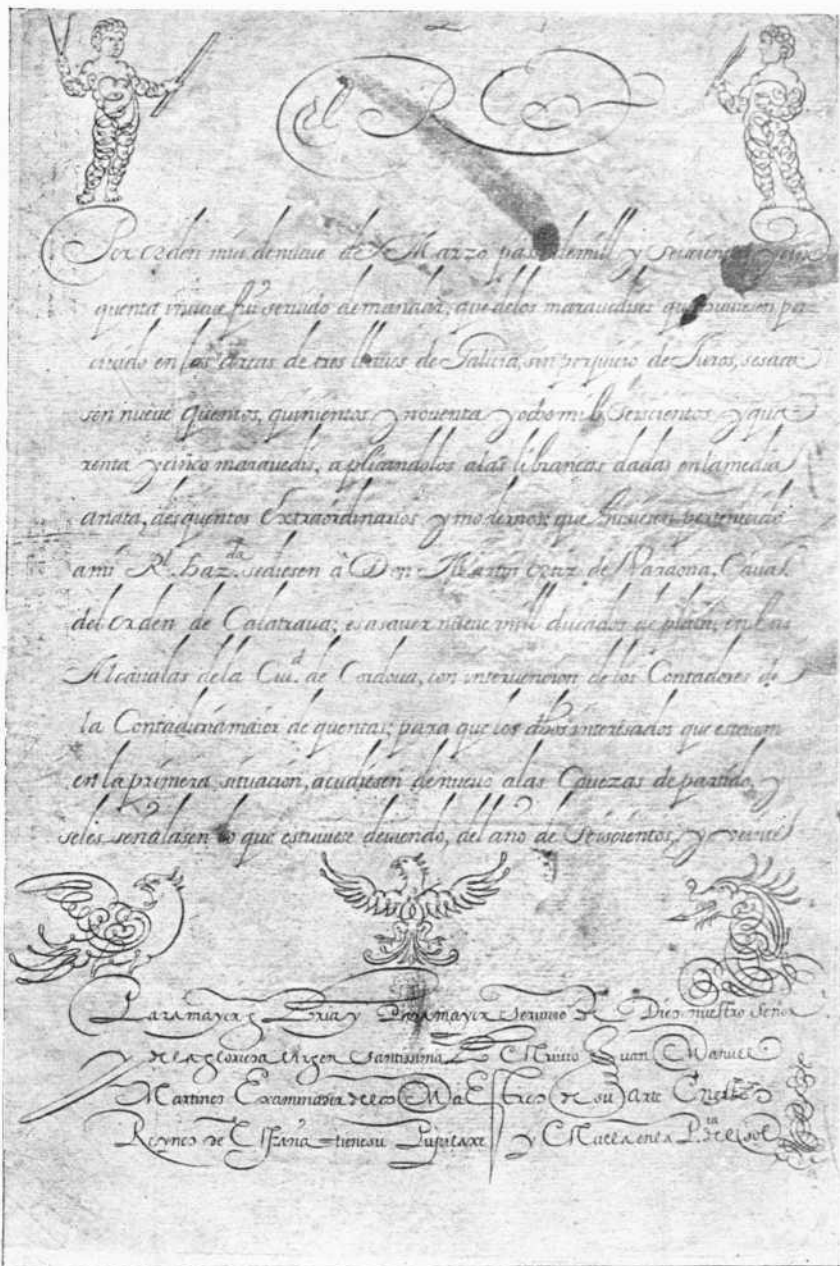 el R
Por orden mia, de nueve de Marzo, pas. de mill y Seiscientos y cin
quenta y nueve fui servido de mandar, que de los maravedises que huviesen pro
cedido en las Arcas de tres llaves de Galicia, sin perjuicio de Juros, se saca
sen nueve quentos, quinientos y noventa y ocho mil, Seiscientos y qua
renta y cinco maravedis, aplicandolos a las libranças dadas en la media
anata, desquentos Extraordinarios, y modernos; que huviesen pertenecido
a mi Rl. haz.da se diesen â Don Martin Ortiz de Cavall.
del orden de Calatrava; es a saver nueve mill ducados de plata, en las
Alcavalas dela Ciu.d de Cordova, con intervencion de los Contadores de
la Contaduria maior de quentas; para que los dhos interesados que estavan
en la primera situacion, acudiesen de nuevo a las Cavezas de partido, y
se les señalasen lo que estuviese deviendo, del año de Seiscientos, y veinte
Para mayor Gloria y Para mayor Servicio de Dios nuestro Señor
y de la gloriosa Virgen Santissima Juan Manuel
Martinez Examinador de los Maestros de su Arte En estos
Reynos de España = tiene su y Escuela en la P.ta de el sol